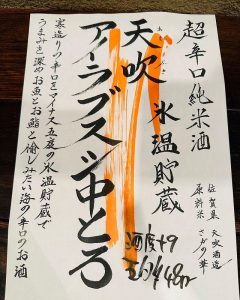 超辛口純米酒
佐賀県 天吹酒造
原料米 さがの華
天吹 氷温貯蔵
アイラブスシ中とろ
寒造りの辛口をマイナス五度の氷温貯蔵で
うまみを深めお魚とお鮨と愉しみたい海の辛口のお酒
酒度+9